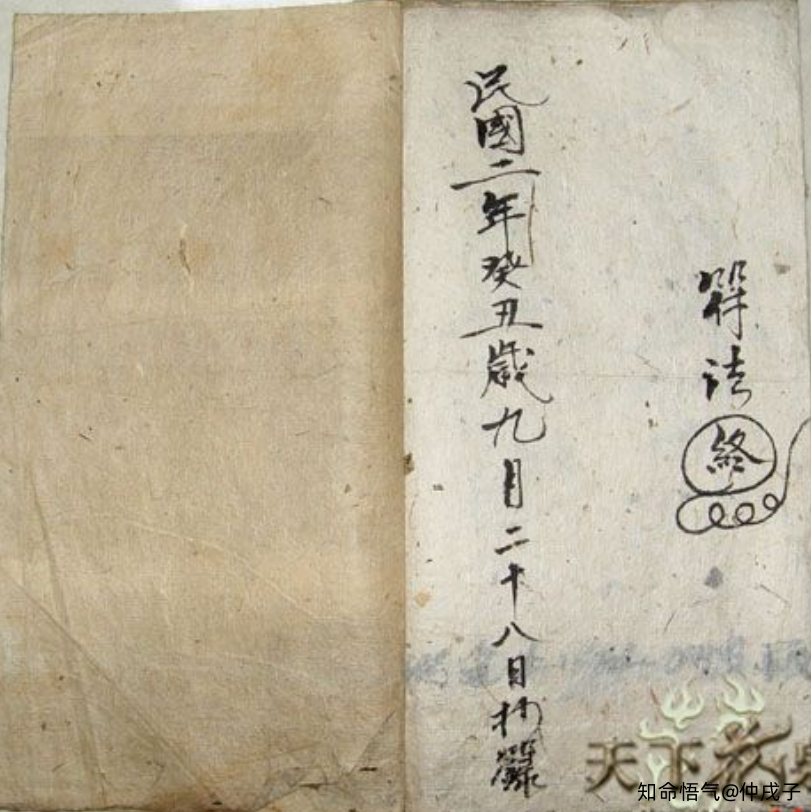 符法終
民國二年癸丑歲九月二十八日抄籙
天下
知命悟气@仲戌子